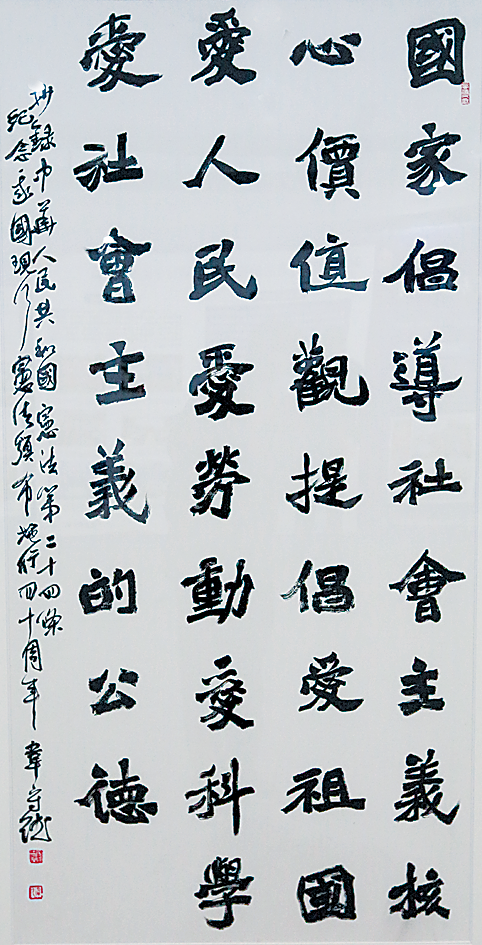 國家倡導社會主義核
心價值觀提倡愛祖國
愛人民愛勞動愛科學
愛社會主義的公德
抄錄中華人民共和國憲法第二十四條
紀念我國現行憲法頒布施行四十周年 韋守德